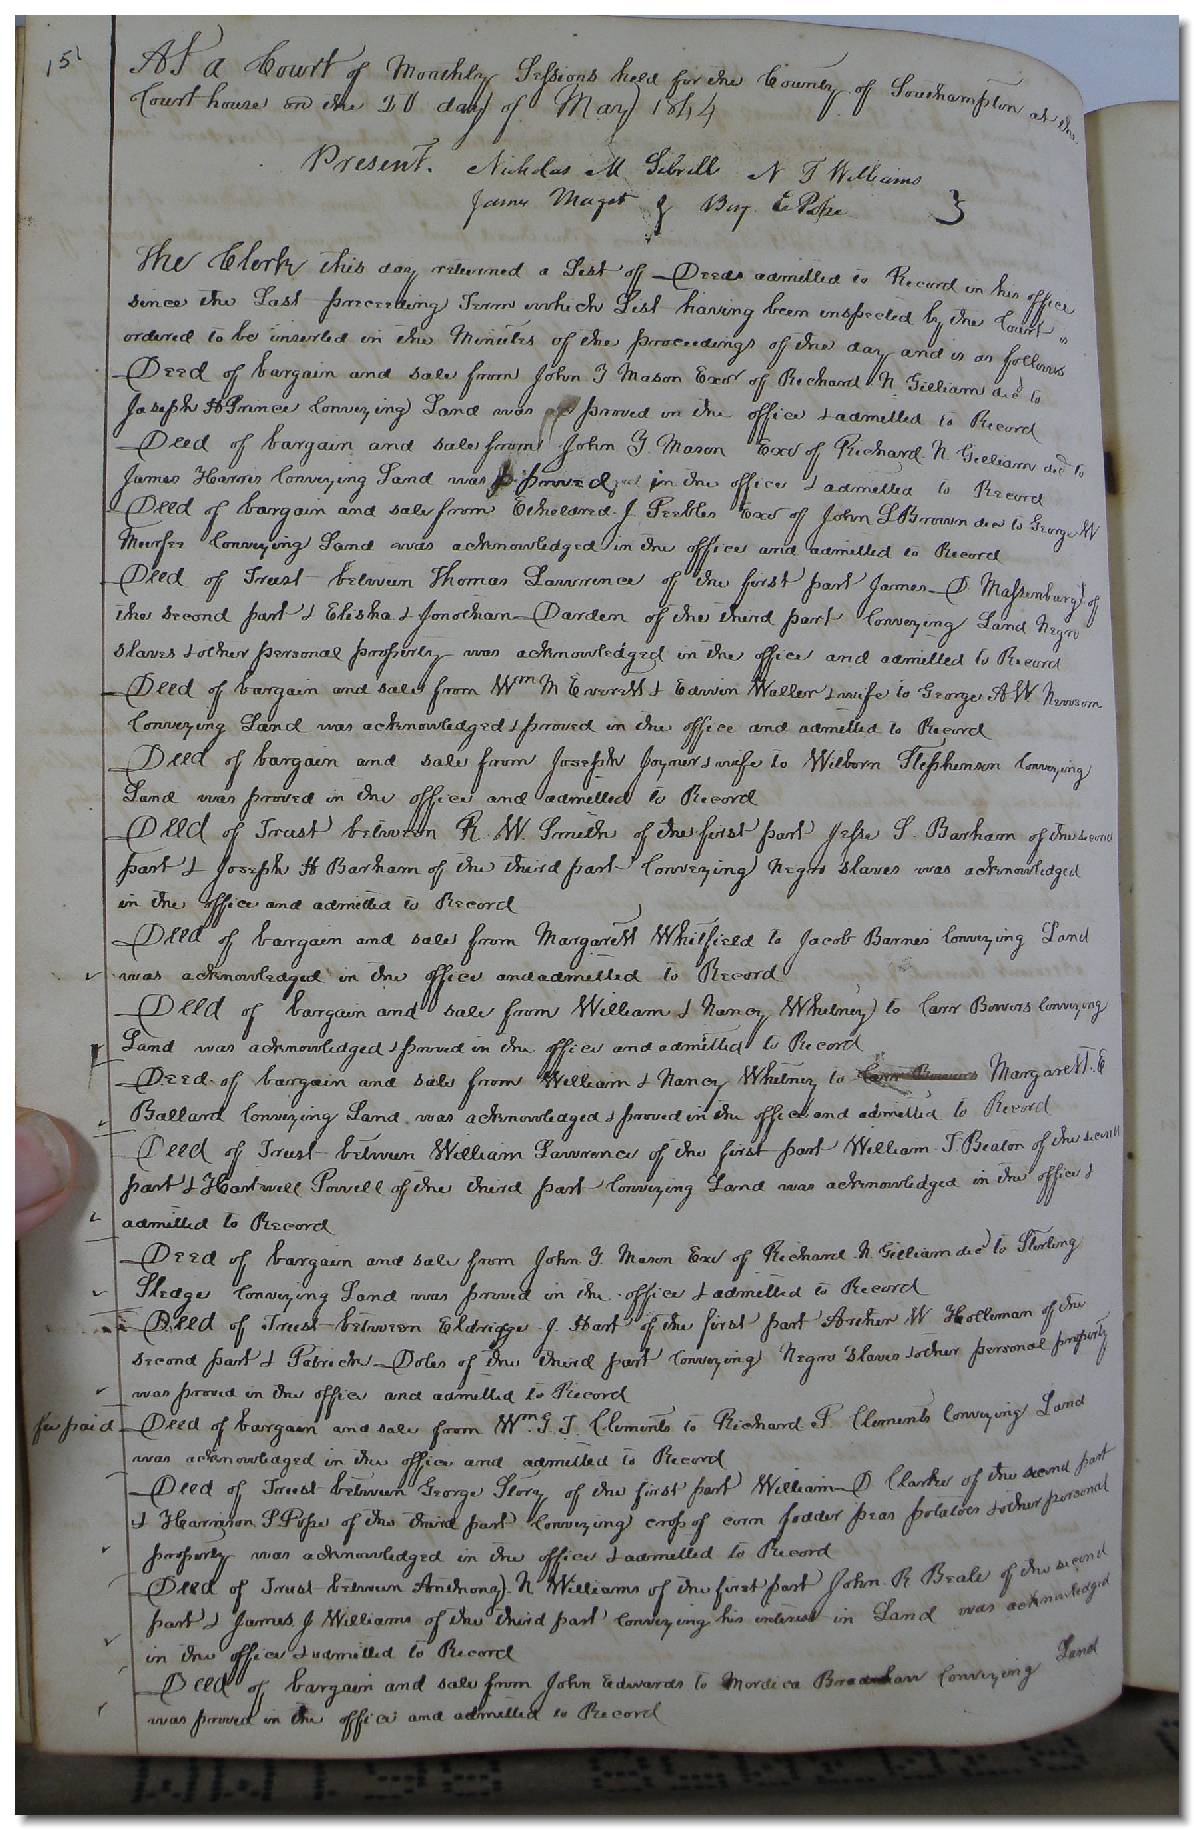 151
At a Court of Monthly Sessions held for the County of Southampton at the
Court house on the 20 day of May 1844
Present. Nicholas M Sebrell N T Williams
James Maget & Benj. E Pope
The Clerk this day returned a List of Deeds admitted to Record in his office
since the Last preceeding Term which List having been inspected by the Court
ordered to be inserted in the Minutes of the proceedings of the day and is as follows
Deed of bargain and sale from John Y Mason Exor of Richard N Gilliam decd to
Joseph H Prince Conveying Land was proved in the office & admitted to Record
Deed of bargain and sale from John Y. Mason Exor of Richard N Gilliam decd to
James Harris Conveying Land was proved in the office & admitted to Record
Deed of bargain and sale from Etheldred J. Peebles Exor of John L Brown dec to George W
Murfee Conveying Land was acknowledged in the office and admitted to Record
Deed of Trust between Thomas Lawrence of the first part James D. Massenburg of
the second part & Elisha & Jonathan Darden of the third part Conveying Land Negro
slaves & other personal property was acknowledged in the office and admitted to Record
Deed of bargain and sale from Wm M Everett & Edwin Waller & wife to George A W Newsom
Conveying Land was acknowledged & proved in the office and admitted to Record
Deed of bargain and sale from Joseph Joyner & wife to Wilborn Stephenson Conveying
Land was proved in the office and admitted to Record
Deed of Trust between R. W. Smith of the first part Jesse S. Barham of the second
part & Joseph H Barham of the third part Conveying Negro slaves was acknowledged
in the office and admitted to Record
Deed of bargain and sale from Margarett Whitfield to Jacob Barnes Conveying Land
was acknowledged in the office and admitted to Record
Deed of bargain and sale from William & Nancy Whitney to Carr Bowers Conveying
Land was acknowledged & proved in the office and admitted to Record
Deed of bargain and sale from William & Nancy Whitney to Carr Bowers Margarett E
Ballard Conveying Land was acknowledged & proved in the office and admitted to Record
Deed of Trust between William Lawrence of the first part William T. Beaton of the second
part & Hartwell Powell of the third part Conveying Land was acknowledged in the office &
admitted to Record
Deed of bargain and sale from John Y. Mason Exor of Richard N. Gilliam decd to Sterling
Sledge Conveying Land was proved in the office & admitted to Record
Deed of Trust between Eldridge J. Hart of the first part Archer W Holleman of the
second part & Patrick Doles of the third part Conveying Negro slaves & other personal property
was proved in the office and admitted to Record
fee paid Deed of bargain and sale from Wm G. T. Clements to Richard P. Clements Conveying Land
was acknowledged in the office and admitted to Record
Deed of Trust between George Story of the first part William D Clarke of the second part
& Harrison P Pope of the third part Conveying crop of corn fodder peas potatoes & other personal
property was acknowledged in the office & admitted to Record
Deed of Trust between Anthony N Williams of the first part John R Beale of the second
part & James J Williams of the third part Conveying his interest in Land was acknowledged
in the office & admitted to Record
Deed of bargain and sale from John Edwards to Mordica Conveying Land
was proved in the office and admitted to Record